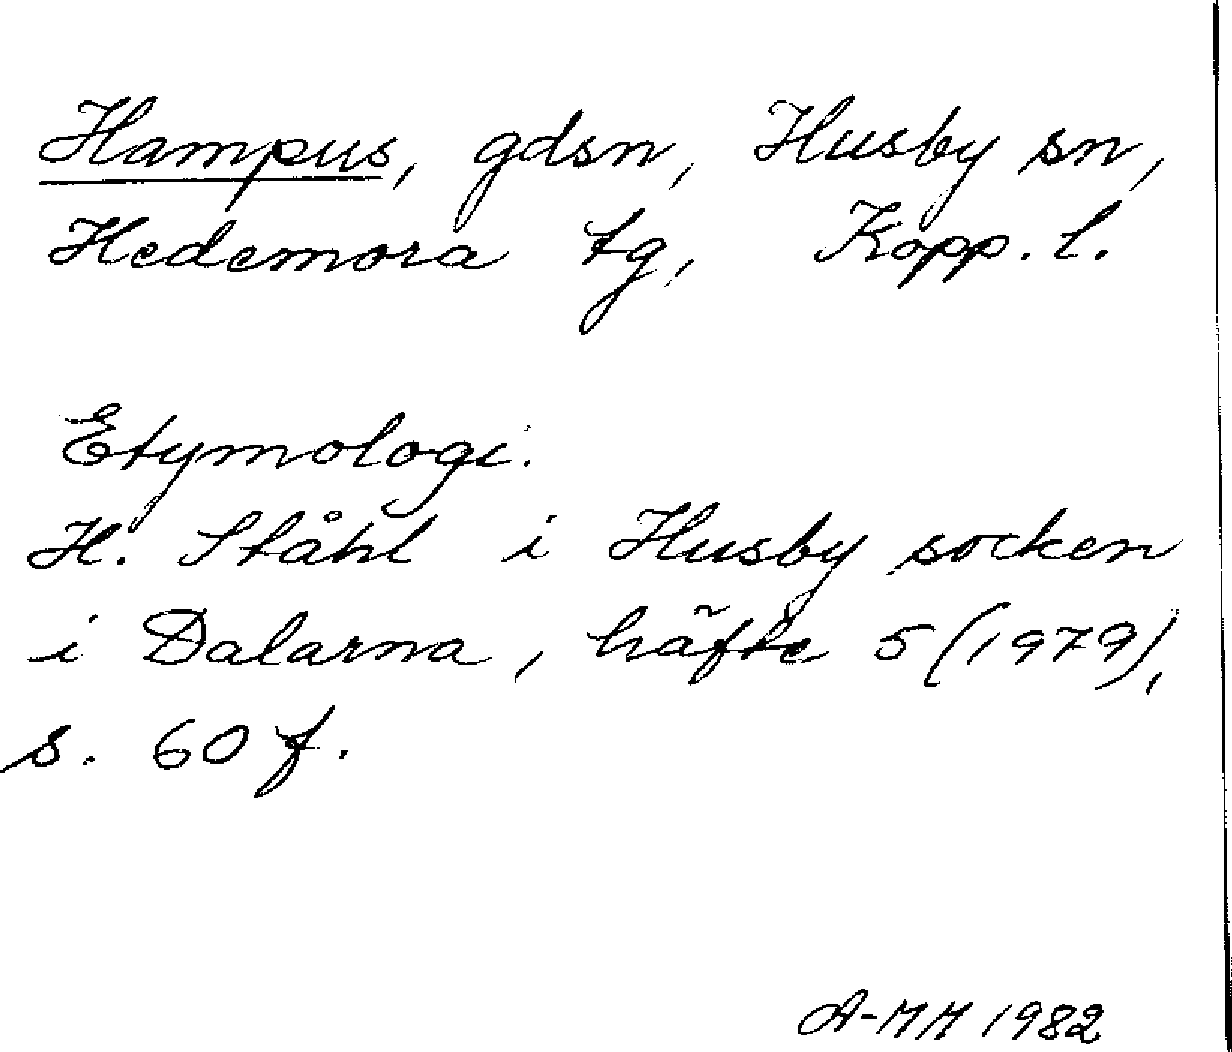 Hampus, gdsn, Husby sn,
Hedemora tg, Kopp. l.
Etymologi.
H. Ståhl i Husby socken
i Dalarna, häfte 5 (1979),
s. 60 f.
A-MM 1982